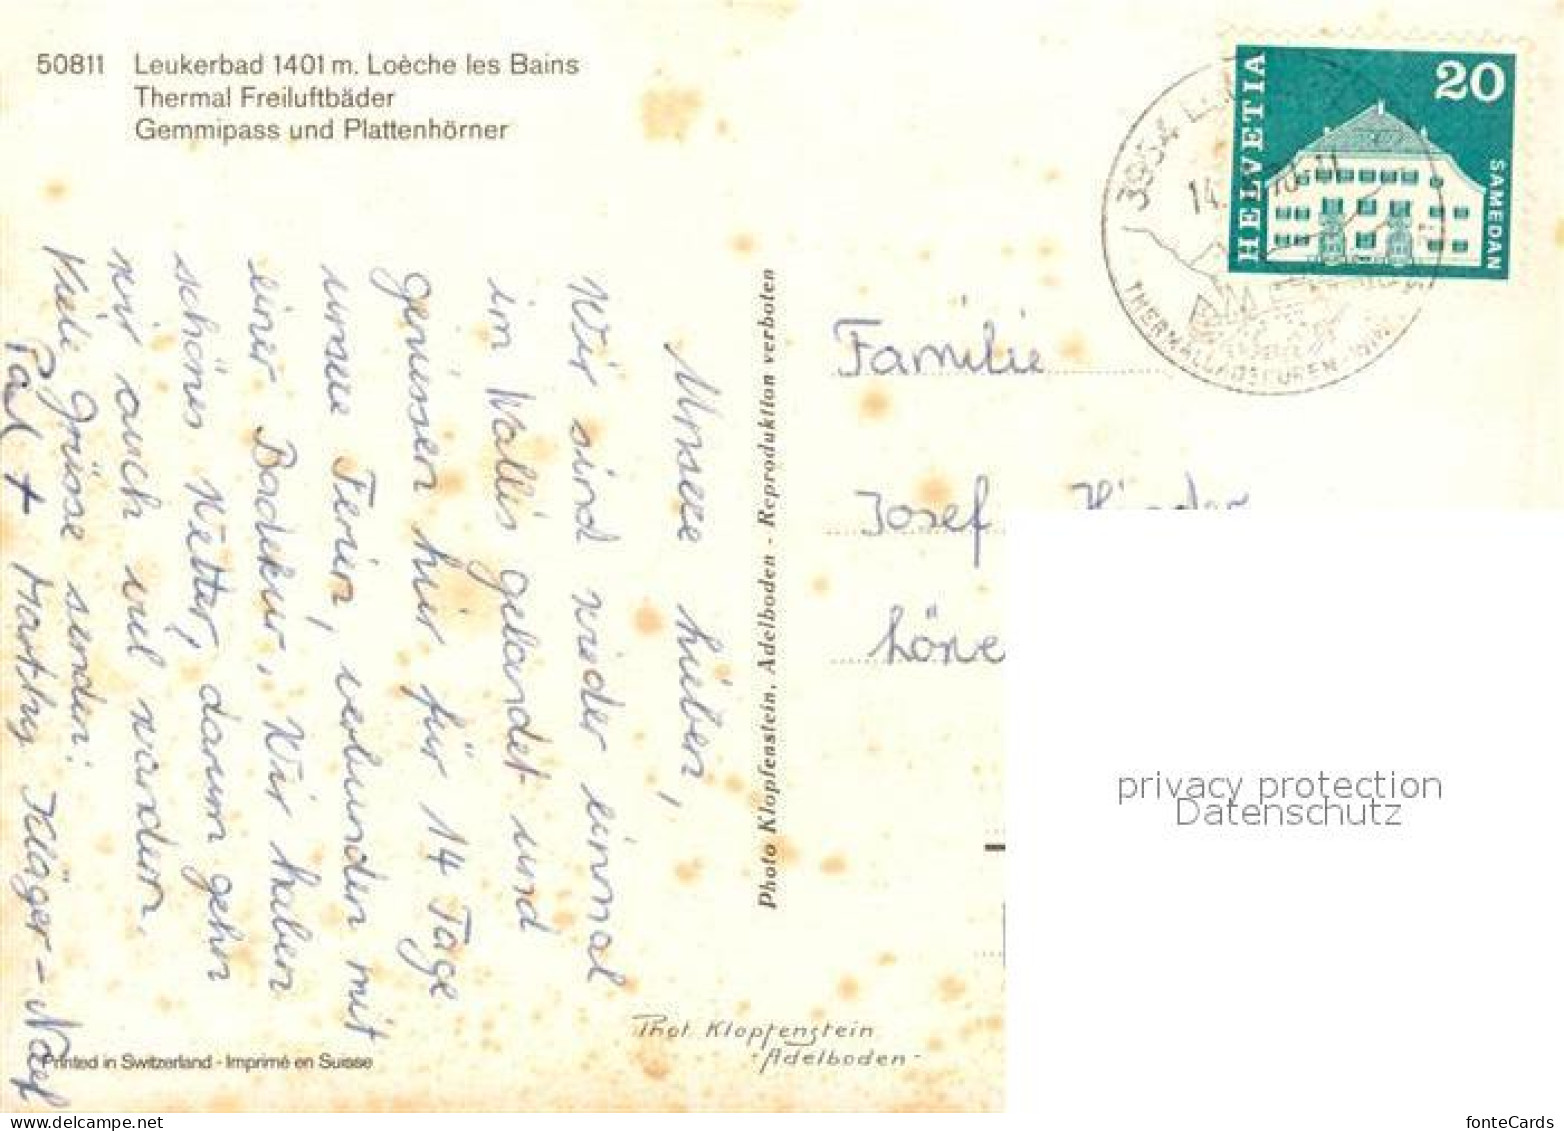 50811 Leukerbad 1401 m. Loèche les Bains
Thermal Freiluftbäder
Gemmipass und Plattenhörner
HELVETIA
20
SAMEDAN
3954
14.
Unsere lieben,
Wir sind wieder einmal
im Wallis gelandet und
geniessen hier für 14 Tage
unsere Ferien, verbunden mit
einer Badekur. Wir haben
schönes Wetter, darum gehn
wir auch viel wandern.
Viele Grüsse senden:
Paul + Marthy Jäger-Naef
Photo Klopfenstein, Adelboden - Reproduktion verboten
Familie
Josef
Phot. Klopfenstein
- Adelboden -
Printed in Switzerland - Imprimé en Suisse
privacy protection
Datenschutz
www.delcampe.net
fonteCards